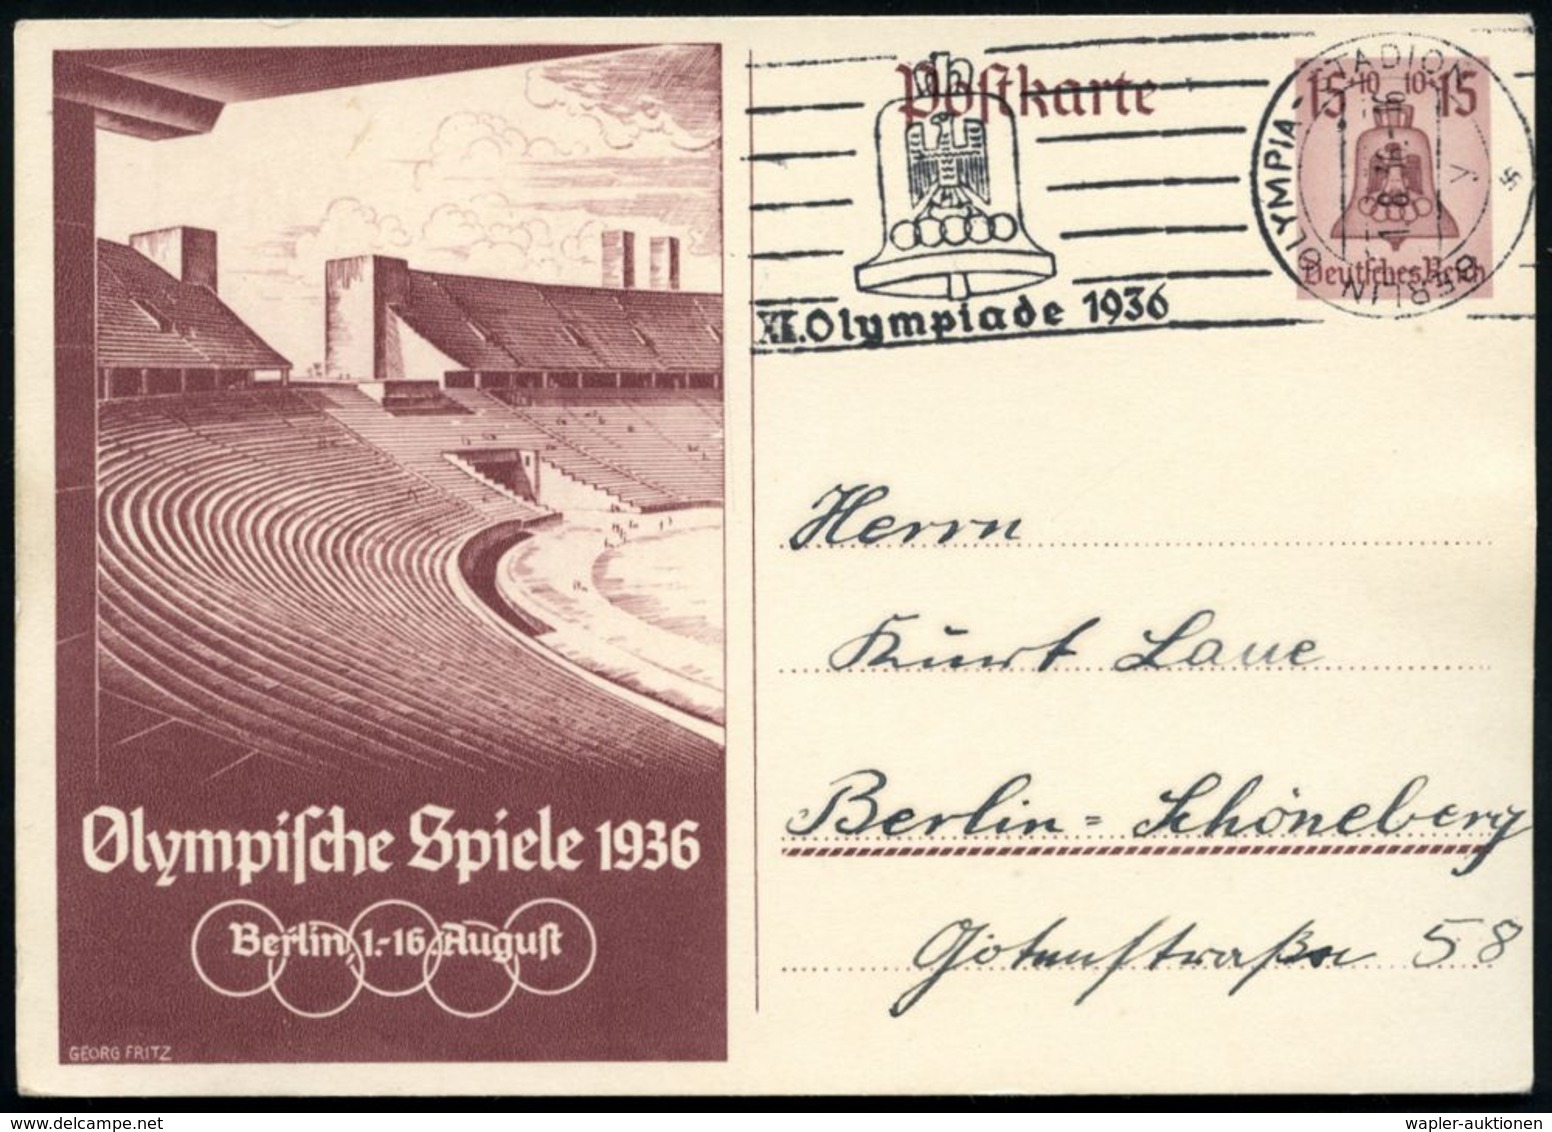 Olympische Spiele 1936
Berlin, 1.-16. August
GEORG FRITZ
Postkarte
XI. Olympiade 1936
15+10 10+15
Deutsches Reich
BERLIN OLYMPIA-STADION
y
Herrn
Kurt Laue
Berlin-Schöneberg
Gotenstraße 58
wapler-auktionen